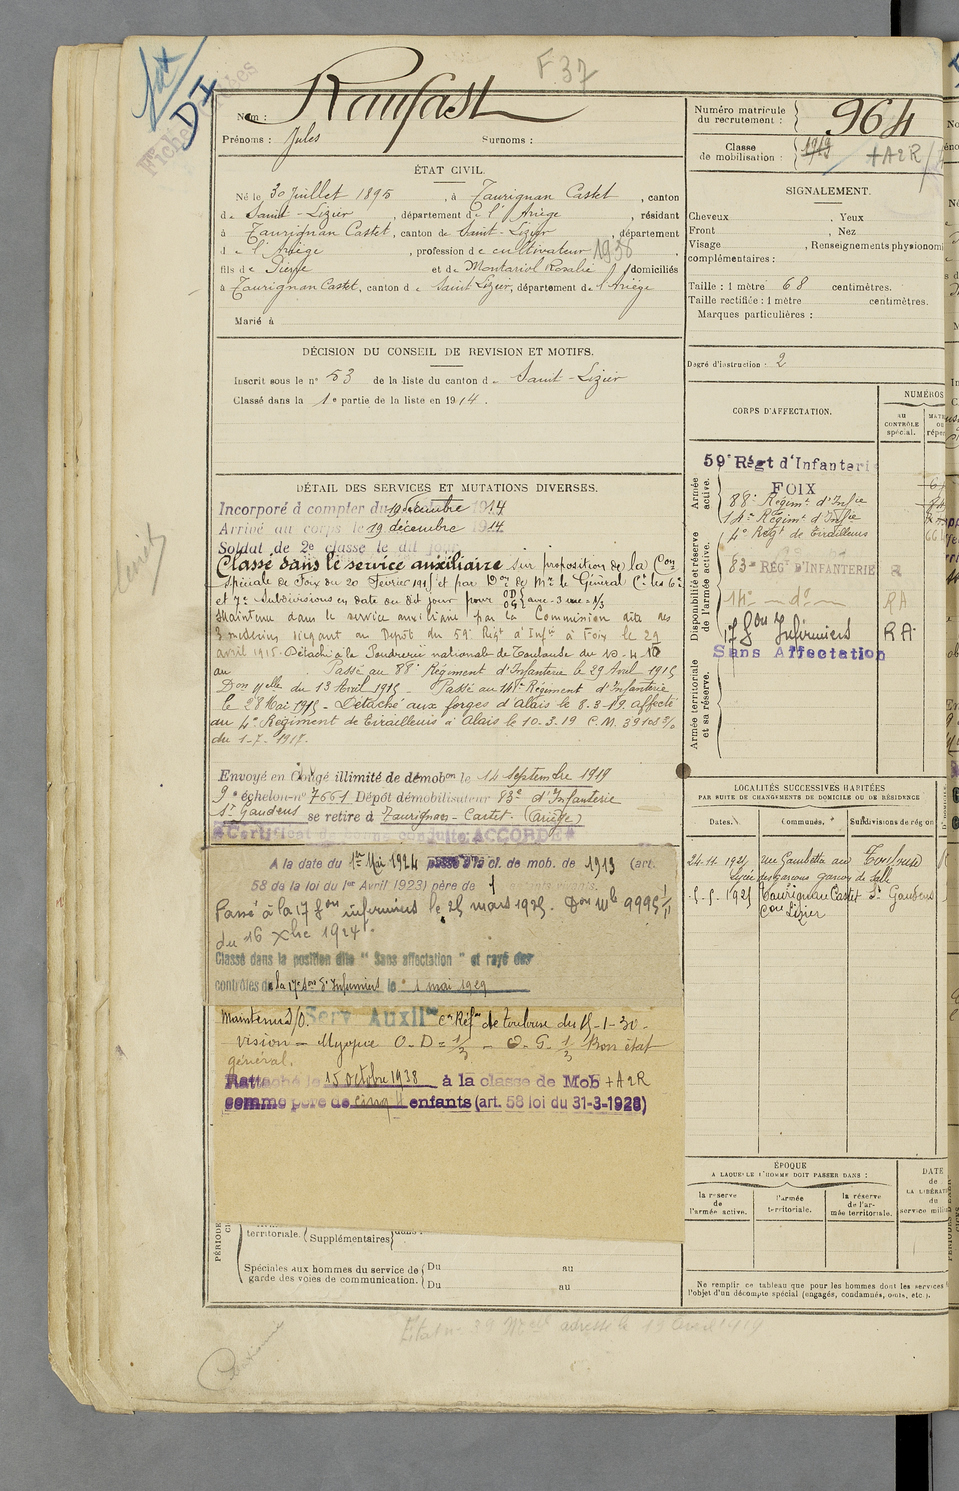 F 37
Nom : Raufast
Prénoms : Jules Surnoms :
Numéro matricule du recrutement : 964
Classe de mobilisation : 1915 + A2R
ÉTAT CIVIL.
Né le 30 Juillet 1895, à Taurignan Castet, canton
de Saint-Lizier, département de l'Ariège, résidant
à Taurignan Castet, canton de Saint-Lizier, département
d e l'Ariège, profession d e cultivateur 1938
fils de Pierre et de Montariol Rosalie domiciliés
à Taurignan Castet, canton d e Saint Lizier, département de l'Ariège
Marié à
SIGNALEMENT.
Cheveux , Yeux
Front , Nez
Visage , Renseignements physionomi
complémentaires :
Taille : 1 mètre 68 centimètres.
Taille rectifiée : 1 mètre centimètres.
Marques particulières :
Degré d'instruction : 2
DÉCISION DU CONSEIL DE REVISION ET MOTIFS.
Inscrit sous le n° 53 de la liste du canton d e Saint-Lizier
Classé dans la 1e partie de la liste en 1914.
DÉTAIL DES SERVICES ET MUTATIONS DIVERSES.
Incorporé à compter du 19 décembre 1914
Arrivé au corps le 19 décembre 1914.
Soldat de 2e classe le dit jour
Classé dans le service auxiliaire sur proposition de la Con
spéciale de Foix du 20 Février 1915 et par Don de Mr le Général Ct les 6e
et 7e Subdivisions en date du dit jour pour
Maintenu dans le service auxiliaire par la Commission dite des
3 médecins siégeant au Dépôt du 59e Régt d'Infie à Foix le 29
avril 1915. Détaché à la Poudrerie nationale de Toulouse du 10-4-15
au Passé au 88e Régiment d'Infanterie le 29 Avril 1915
Don du 13 Avril 1915 - Passé au 14e Régiment d'Infanterie
le 28 Mai 1915 - Détaché aux forges d'Alais le 8.3.19 affecté
au 4e Régiment de Tirailleurs à Alais le 10.3.19 C.M.
du 1-7-1917.
Envoyé en Congé illimité de démobon le 14 septembre 1919
9e échelon-n° 7661 Dépôt démobilisateur 83e d'Infanterie
St Gaudens se retire à Taurignan-Castet (Ariège)
Certificat de bonne conduite ACCORDÉ
A la date du 1er Mai 1924 cl. de mob. de 1913 (art.
58 de la loi du 1er Avril 1923) père de 1
Passé à la 17 Son infirmiers le 25 mars 1925. Don Mle 9995
du 16 Xbre 1924.
Classé dans la position dite " Sans affectation " et rayé des
contrôles de la 17e Son d'Infirmiers le 1 mai 1929
Maintenu S/O. Serv Auxilre Cn Réfme de Toulouse du 15-1-30-
vision - Myopie O-D = 1/3 - O. G. 1/3 Bon état
général.
Rattaché le 15 octobre 1938 à la classe de Mob + A2R
comme père de cinq enfants (art. 58 loi du 31-3-1928)
CORPS D'AFFECTATION.
NUMÉROS
AU CONTRÔLE spécial.
Armée active.
59e Régt d'Infanterie
FOIX
88e Régimt d'Infie
14e Régimt d'Infie
4e Régt de Tirailleurs
Disponibilité et réserve de l'armée active.
83e RÉGT D'INFANTERIE R
14e - do - RA
17 Son Infirmiers RA
Sans Affectation
Armée territoriale et sa réserve.
LOCALITÉS SUCCESSIVES HABITÉES
PAR SUITE DE CHANGEMENTS DE DOMICILE OU DE RÉSIDENCE
Dates. Communes. Subdivisions de région
rue Gambetta au Toulouse
Lycée des garçons garçon de salle
5-5-1925 Taurignan Castet St Gaudens
Con Lizier
ÉPOQUE
A LAQUELLE L'HOMME DOIT PASSER DANS :
la réserve de l'armée active.
l'armée territoriale.
la réserve de l'armée territoriale.
DATE
de
LA LIBÉRAT
du
service milit
territoriale. (Supplémentaires)
Spéciales aux hommes du service de garde des voies de communication.
Du au
Du au
Ne remplir ce tableau que pour les hommes dont les services
l'objet d'un décompte spécial (engagés, condamnés, omis, etc.).